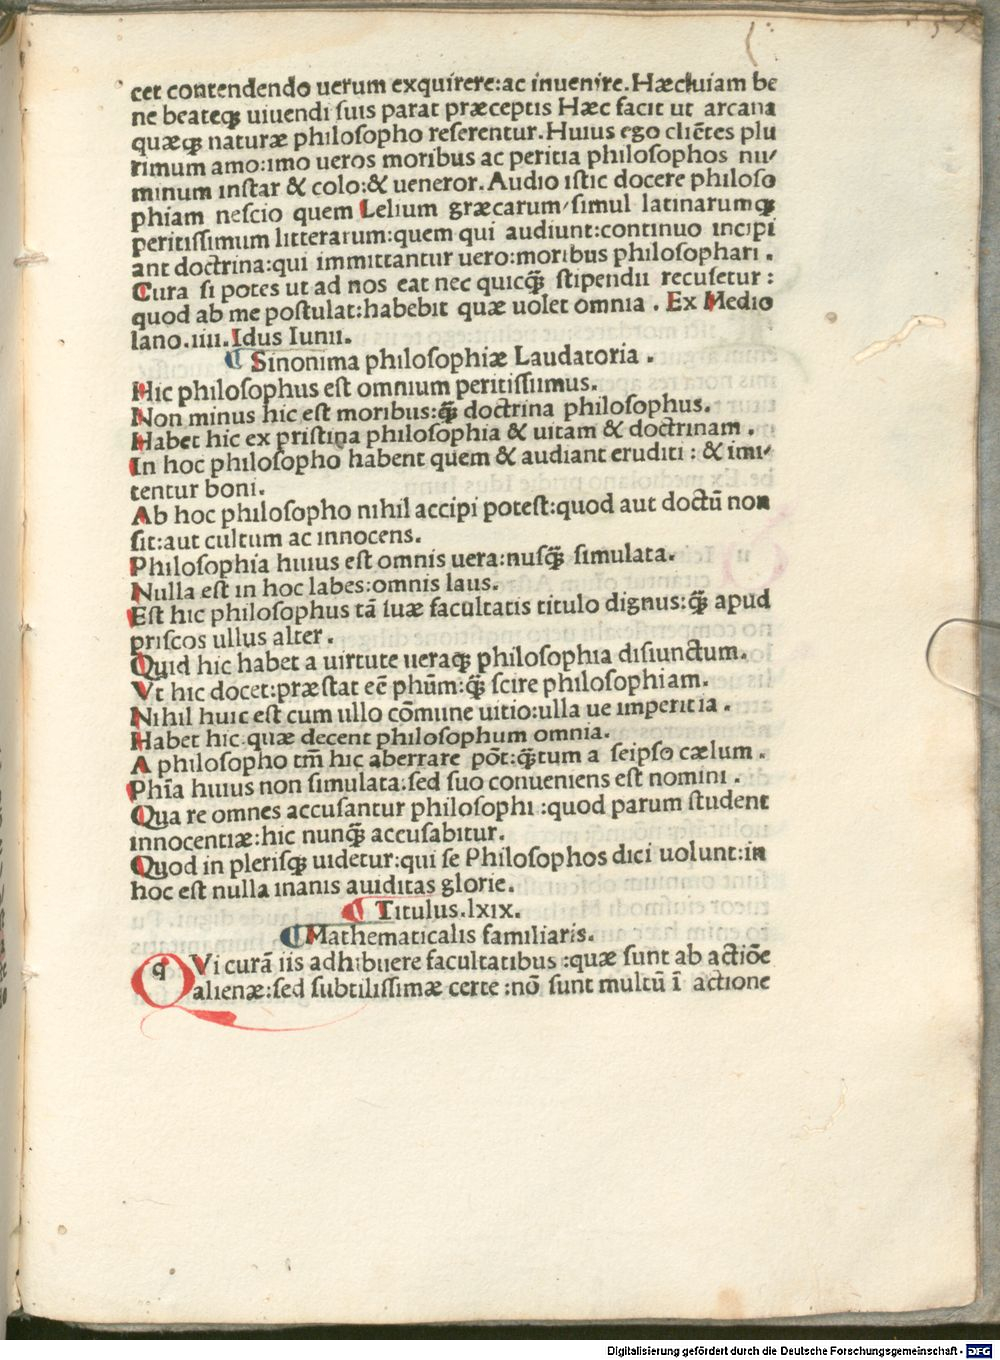 cet contendendo uerum exquirere:ac inuenire. Hæc uiam be
ne beateqꝫ uiuendi suis parat præceptis Hæc facit ut arcana
quæqꝫ naturæ philosopho reserentur. Huius ego cliẽtes plu
rimum amo:imo ueros moribus ac peritia philosophos nu/
minum instar & colo:& ueneror. Audio istic docere philoso
phiam nescio quem Lelium græcarum/simul latinarumqꝫ
peritissimum litterarum:quem qui audiunt:continuo incipi
ant doctrina:qui immittantur uero:moribus philosophari .
Cura si potes ut ad nos eat nec quicq̃ꝫ stipendii recusetur :
quod ab me postulat:habebit quæ uolet omnia . Ex Medio
lano.iiii.Idus Iunii.
¶ Sinonima philosophiæ Laudatoria .
Hic philosophus est omnium peritissimus.
Non minus hic est moribus:q̃ꝫ doctrina philosophus.
Habet hic ex pristina philosophia & uitam & doctrinam .
In hoc philosopho habent quem & audiant eruditi : & imi/
tentur boni.
Ab hoc philosopho nihil accipi potest:quod aut doctũ non
sit:aut cultum ac innocens.
Philosophia huius est omnis uera:nusq̃ꝫ simulata.
Nulla est in hoc labes:omnis laus.
Est hic philosophus tã suæ facultatis titulo dignus:q̃ꝫ apud
priscos ullus alter .
Quid hic habet a uirtute ueraqꝫ philosophia disiunctum.
Vt hic docet:præstat eẽ phũm:q̃ꝫ scire philosophiam.
Nihil huic est cum ullo cõmune uitio:ulla ue imperitia .
Habet hic quæ decent philosophum omnia.
A philosopho tm̃ hic aberrare põt:q̃ꝫtum a seipso cælum .
Phĩa huius non simulata:sed suo conueniens est nomini .
Qua re omnes accusantur philosophi :quod parum student
innocentiæ:hic nunq̃ꝫ accusabitur.
Quod in plerisqꝫ uidetur:qui se Philosophos dici uolunt:in
hoc est nulla inanis auiditas glorie.
¶ Titulus.lxix.
¶ Mathematicalis familiaris.
QVi curã iis adhibuere facultatibus :quæ sunt ab actiõe
alienæ:sed subtilissimæ certe :nõ sunt multũ ĩ actione
Digitalisierung gefördert durch die Deutsche Forschungsgemeinschaft - DFG